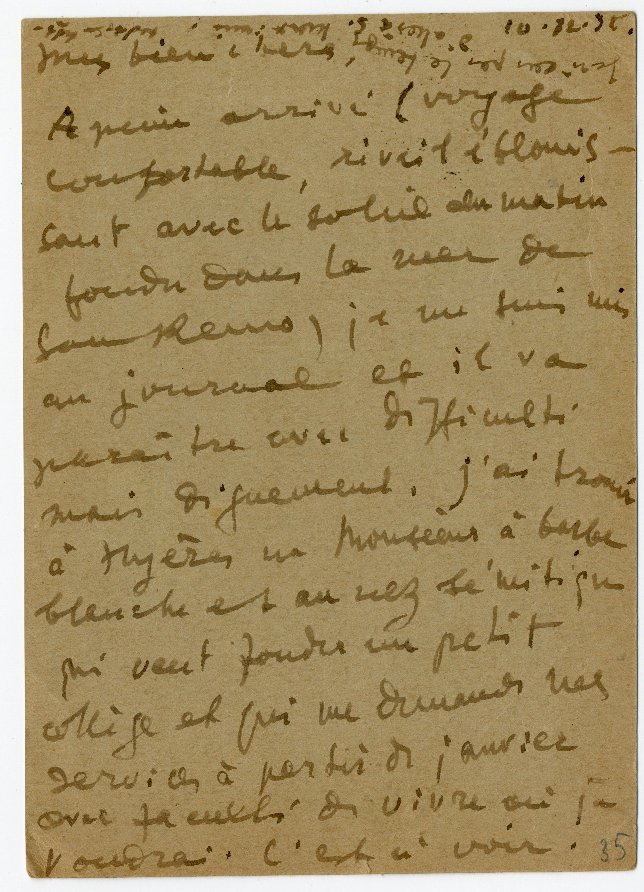 Mes bien chers,
A peine arrivé (voyage
confortable, réveil éblouis-
sant avec le soleil du matin
fondu dans la mer de
San Remo) je me suis mis
au journal et il va
paraître avec difficulté
mais dignement. j'ai trouvé
à Hyères un Monsieur à barbe
blanche et au nez sémitique
qui veut fonder un petit
collège et qui me demande mes
services à partir de janvier
avec faculté de vivre où je
voudrai. C'est à voir.
35